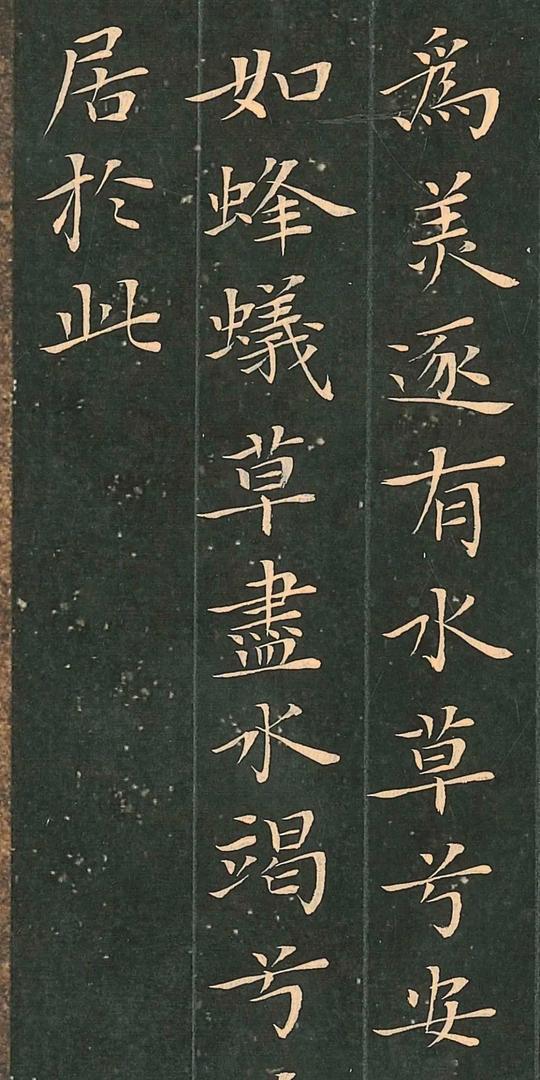 爲美逐有水草兮安
如蜂蟻草盡水竭兮
居於此